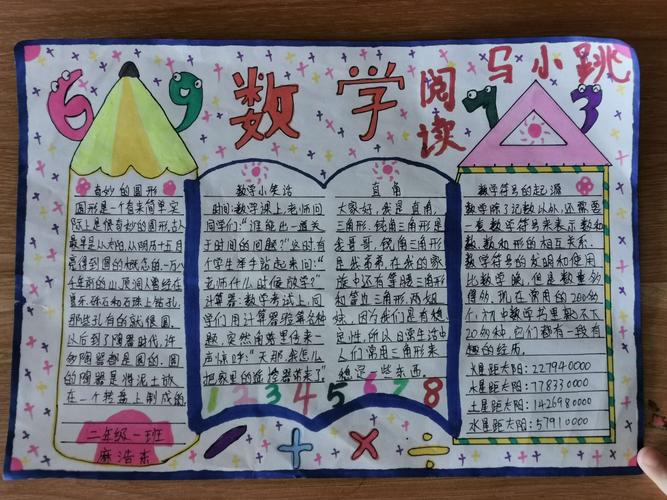 6 9
数学
阅读
马小跳
7 3
奇妙的圆形
圆形是一个看来简单实
际上是很奇妙的圆形,古人
最早是从太阳,从阴历十五月
亮得到圆的概念的,一万八
千年前的山顶洞人曾经在
兽牙、砾石和石珠上钻孔,
那些孔有的就很圆。
以后到了陶器时代,许
多陶器都是圆的。圆
的陶器是将泥土放
在一个转盘上制成的。
二年级一班
麻浩东
数学小笑话
时间:数学课上,老师问
同学们:“谁能出一道关
于时间的问题?”这时有
个学生举手站起来问:“
老师什么时候放学?”
计算器:数学考试上,同
学们用计算器验算各种
题,突然南管里传来一
声惊呼:“天那,我怎么
把家里的遥控器带来了”
直角
大家好,我是直角,
三角形,钝角三角形是
我哥哥,锐角三角形
是我弟弟,在我的家
族中还有等腰三角形
和等直三角形两姐
妹,因为我们具有稳
定性,所以日常生活中
人们常用三角形来
稳定一些东西。
1 2 3 4 5 6 7 8
数学符号的起源
数学除了记数以外,还需要
一套数学符号来表示数和
数,数和形的相互关系。
数学符号的发明和使用
比数学晚,但是数量多
得多,现在常用的200多
个,初中数学书里就不下
20多种,它们都有一段有
趣的经历。
火星距太阳:227940000
木星距太阳:77833000
土星距太阳:1426980000
水星距太阳:57910000
- + × ÷